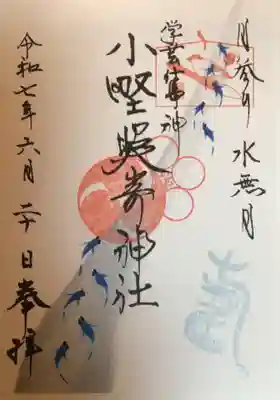 月参り 水無月
学芸仕事神
小野照崎神社
令和七年六月二十日奉拝